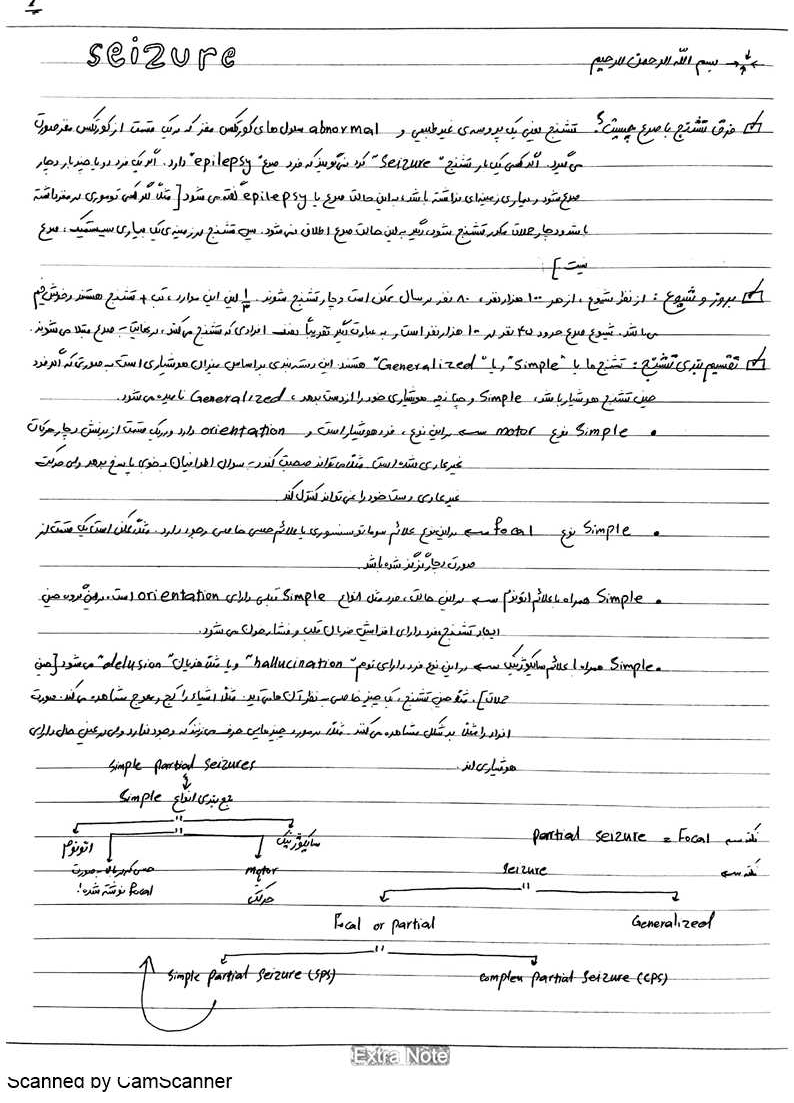 seizure
بسم الله الرحمن الرحیم
فرق تشنج با صرع چیست؟ تشنج یعنی یک پروسه‌ی غیرطبیعی و abnormal سلول‌های کورتکس مغز که در یک قسمت از کورتکس مغز صورت
می‌گیرد. اگر کسی یک بار تشنج "Seizure" کرد نمی‌گوییم که فرد صرع "epilepsy" دارد. اگر یک فرد دو یا چند بار دچار
صرع شود و بیماری زمینه‌ای نداشته باشد، به این حالت صرع یا epilepsy گفته می‌شود [مثلاً اگر کسی توموری در مغز داشته
باشد و دچار حملات مکرر تشنج شود، دیگر به این حالت صرع اطلاق نمی‌شود. پس تشنج در زمینه‌ی یک بیماری سیستمیک، صرع
نیست]
بروز و شیوع: از نظر شیوع، از هر ۱۰۰ هزار نفر، ۸۰ نفر در سال ممکن است دچار تشنج شوند. ۱/۳ این موارد، تب + تشنج هستند و خوش‌خیم
می‌باشد. شیوع صرع حدود ۴۵ نفر در ۱۰۰ هزار نفر است و به عبارت دیگر تقریباً نصف افرادی که تشنج می‌کنند، در نهایت به صرع مبتلا می‌شوند.
تقسیم بندی تشنج: تشنج‌ها یا "Simple" و یا "Generalized" هستند. این دسته‌بندی بر اساس میزان هوشیاری است به صورتی که اگر فرد
حین تشنج هوشیار باشد، Simple و چنانچه هوشیاری خود را از دست بدهد، Generalized نامیده می‌شود.
• Simple نوع motor ← در این نوع، فرد هوشیار است و orientation دارد و در یک قسمت از بدنش دچار حرکات
غیرعادی شده است. مثلاً می‌تواند صحبت کند و به سوال اطرافیان به خوبی پاسخ بدهد ولی حرکت
غیرعادی دست خود را نمی‌تواند کنترل کند
• Simple نوع focal ← در این نوع علائم سوماتوسنسوری یا علائم حسی خاصی وجود دارد. مثلاً ممکن است یک قسمت از
صورت دچار گزگز شده باشد.
• Simple همراه با علائم اتونوم ← در این حالت، فرد مثل انواع Simple قبلی دارای orientation است، در این گروه حین
ایجاد تشنج، فرد دارای افزایش ضربان قلب و فشار خون می‌شود.
• Simple همراه با علائم سایکوژنیک ← در این نوع فرد دارای توهم "hallucination" و یا مثلاً هذیان "delusion" می‌شود [حین
حملات]. مثلاً حین تشنج، یک چیز خاصی به نظر آن‌ها می‌آید. مثلاً اشیاء را کج و معوج مشاهده می‌کند. صورت
افراد را مثلاً بد شکل مشاهده می‌کنند. مثلاً در مورد چیزهایی حرف می‌زنند که وجود ندارد ولی در عین حال دارای
هوشیاری‌اند.
simple partial seizures
جمع بندی انواع Simple
اتونوم
سایکوژنیک
motor
حرکتی
focal نوشته شده!
نکته ← partial seizure = Focal
نکته ← seizure
Focal or partial
Generalized
simple partial seizure (SPS)
complex partial seizure (CPS)
Extra Note
Scanned by CamScanner